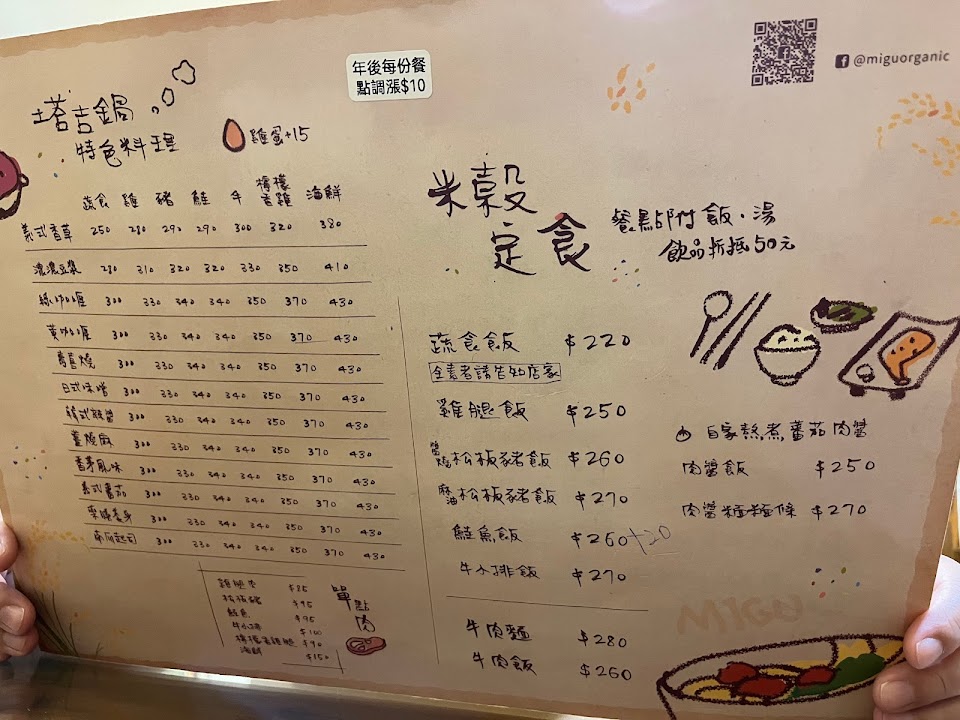 年後每份餐
點調漲$10
@miguorganic
塔吉鍋
特色料理
雞蛋+15
蔬食 雞 豬 鮭 牛 檸檬香雞 海鮮
義式香草 250 280 290 290 300 320 380
濃濃豆漿 280 310 320 320 330 350 410
綠咖哩 300 330 340 340 350 370 430
黃咖哩 300 330 340 340 350 370 430
壽喜燒 300 330 340 340 350 370 430
日式味噌 300 330 340 340 350 370 430
韓式辣醬 300 330 340 340 350 370 430
薑燒麻 300 330 340 340 350 370 430
香茅風味 300 330 340 340 350 370 430
義式番茄 300 330 340 340 350 370 430
300 330 340 340 350 370 430
南瓜起司 300 330 340 340 350 370 430
單點肉
雞腿肉 $85
松板豬 $95
鮭魚 $95
牛小排 $100
檸檬香雞腿 $90
海鮮 $150
米穀
定食
餐點附飯·湯
飲品折抵50元
蔬食飯 $220
全素者請告知店家
雞腿飯 $250
醬燒松板豬飯 $260
麻油松板豬飯 $270
鮭魚飯 $260+20
牛小排飯 $270
牛肉麵 $280
牛肉飯 $260
自家熬煮蕃茄肉醬
肉醬飯 $250
肉醬粗粗條 $270
MIGU